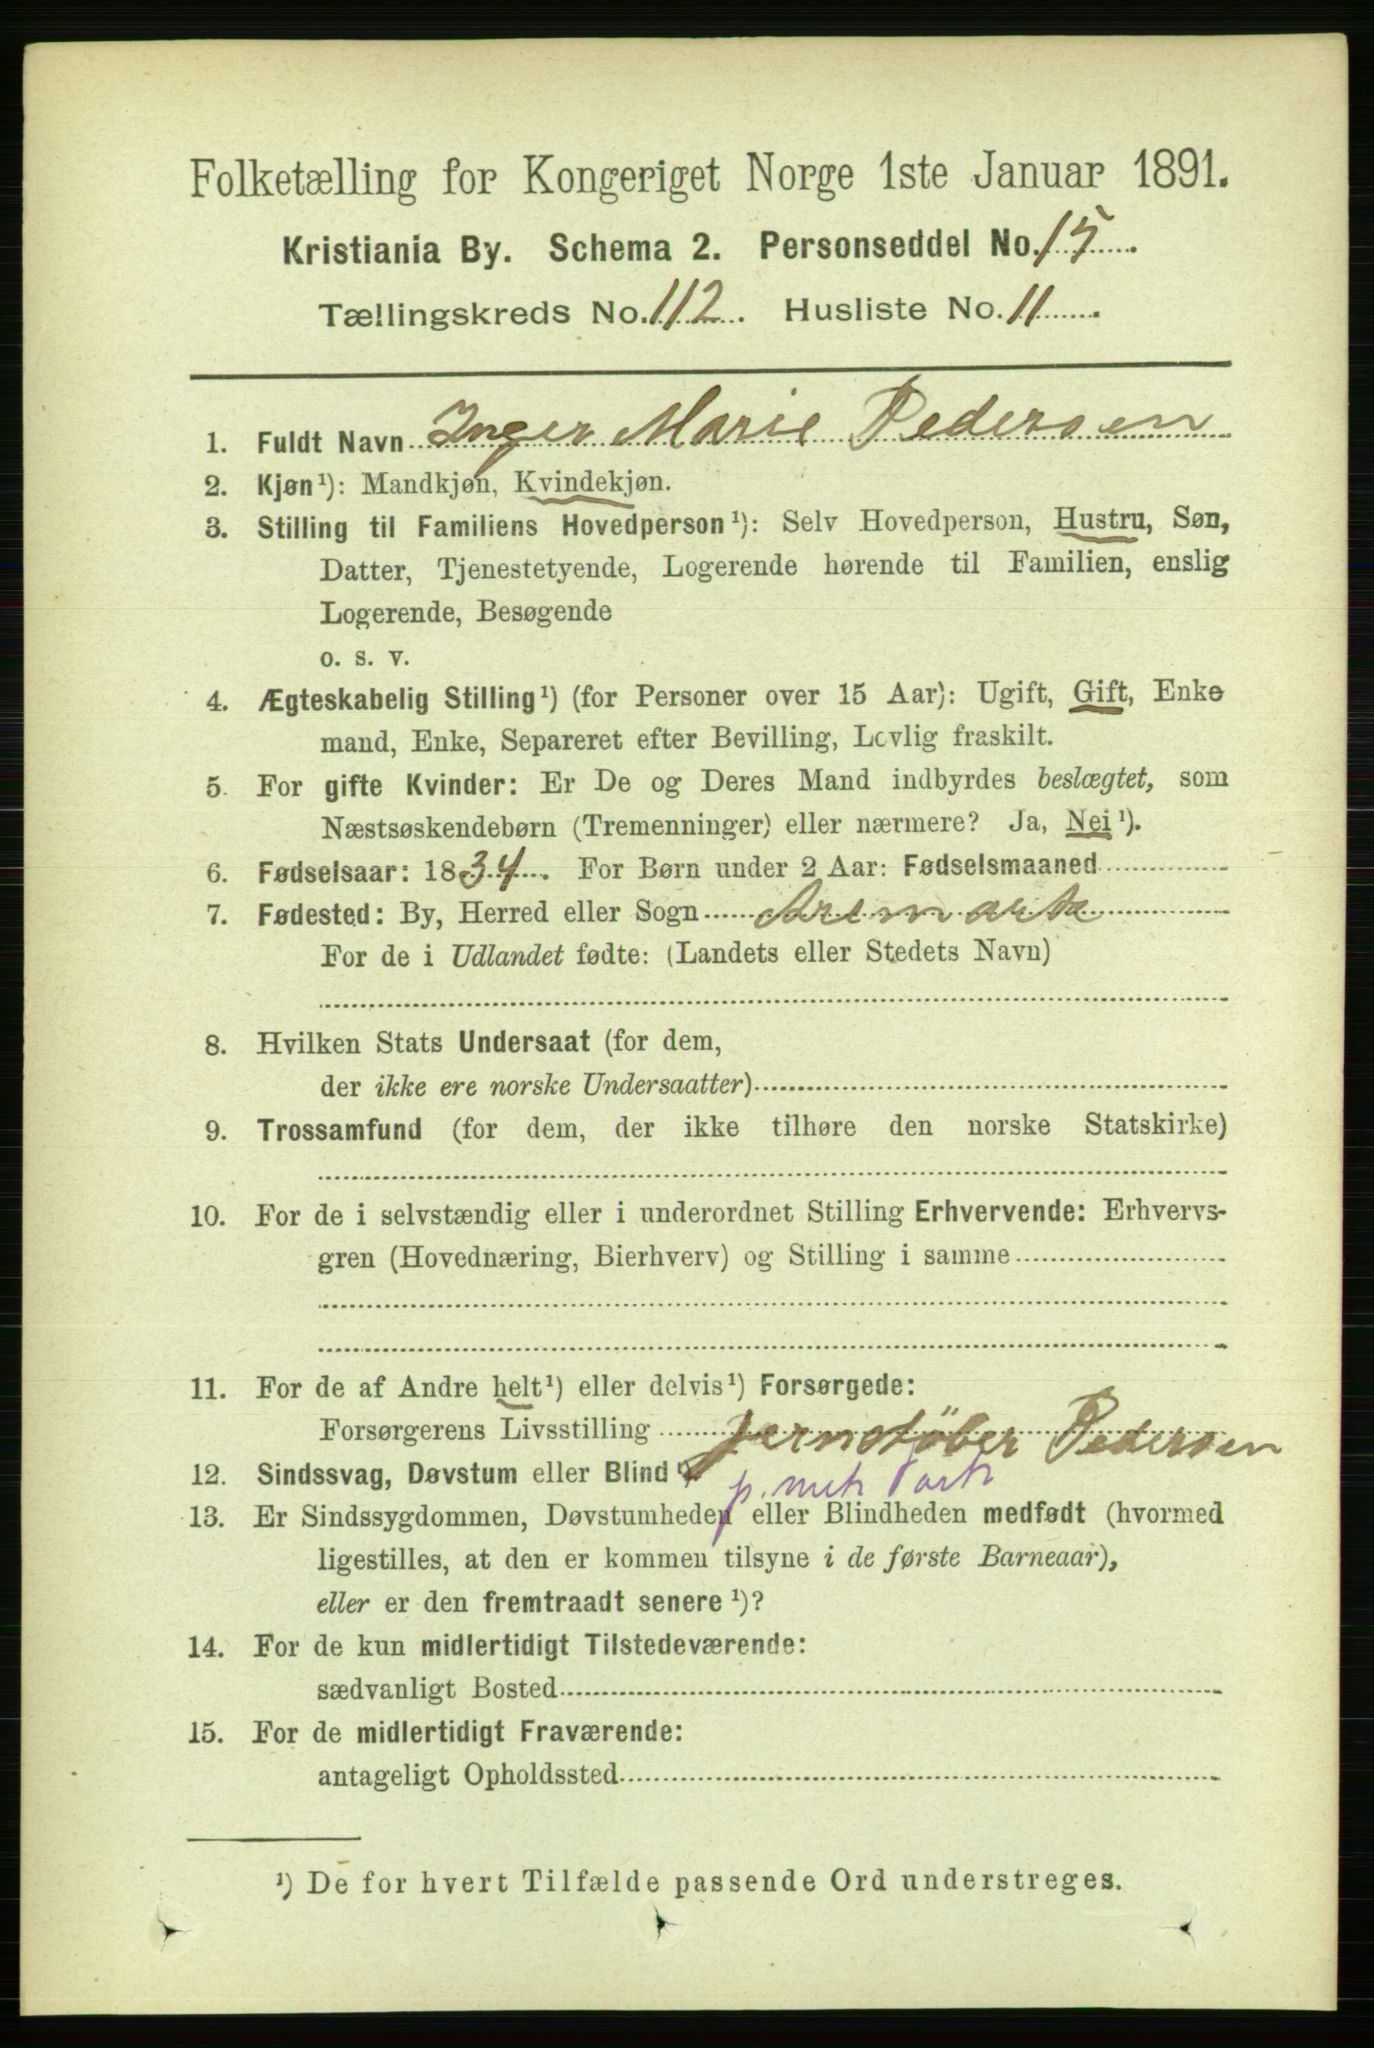 Folketælling for Kongeriget Norge 1ste Januar 1891.
Kristiania By. Schema 2. Personseddel No. 15
Tællingskreds No. 112. Husliste No. 11
1. Fuldt Navn Inger Marie Pedersen
2. Kjøn¹): Mandkjøn, Kvindekjøn.
3. Stilling til Familiens Hovedperson¹): Selv Hovedperson, Hustru, Søn,
Datter, Tjenestetyende, Logerende hørende til Familien, enslig
Logerende, Besøgende
o. s. v.
4. Ægteskabelig Stilling¹) (for Personer over 15 Aar): Ugift, Gift, Enke
mand, Enke, Separeret efter Bevilling, Lovlig fraskilt.
5. For gifte Kvinder: Er De og Deres Mand indbyrdes beslægtet, som
Næstsøskendebørn (Tremenninger) eller nærmere? Ja, Nei¹).
6. Fødselsaar: 1834. For Børn under 2 Aar: Fødselsmaaned
7. Fødested: By, Herred eller Sogn Aremark
For de i Udlandet fødte: (Landets eller Stedets Navn)
8. Hvilken Stats Undersaat (for dem,
der ikke ere norske Undersaatter)
9. Trossamfund (for dem, der ikke tilhøre den norske Statskirke)
10. For de i selvstændig eller i underordnet Stilling Erhvervende: Erhvervs-
gren (Hovednæring, Bierhverv) og Stilling i samme
11. For de af Andre helt¹) eller delvis¹) Forsørgede:
Forsørgerens Livsstilling Jernstøber Pedersen
12. Sindssvag, Døvstum eller Blind¹) p. mek Værk
13. Er Sindssygdommen, Døvstumheden eller Blindheden medfødt (hvormed
ligestilles, at den er kommen tilsyne i de første Barneaar),
eller er den fremtraadt senere¹)?
14. For de kun midlertidigt Tilstedeværende:
sædvanligt Bosted
15. For de midlertidigt Fraværende:
antageligt Opholdssted
¹) De for hvert Tilfælde passende Ord understreges.